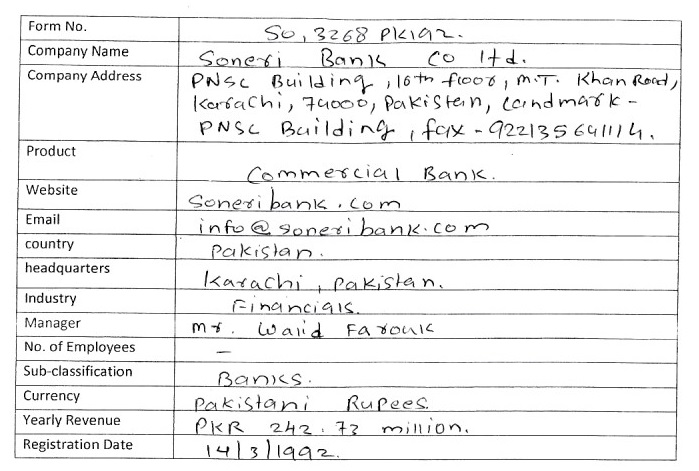 Form No. So, 3268 PK192.
Company Name Soneri Bank Co ltd.
Company Address PNSC Building, 16th floor, M.T. Khan Road,
Karachi, 74000, Pakistan, Landmark -
PNSC Building, fax - 922135641114.
Product Commercial Bank.
Website Soneribank.com
Email info@soneribank.com
country Pakistan.
headquarters Karachi, Pakistan.
Industry Financials.
Manager Mr. Walid Farouk
No. of Employees –
Sub-classification Banks.
Currency Pakistani Rupees.
Yearly Revenue PKR 242.73 million.
Registration Date 14/3/1992.